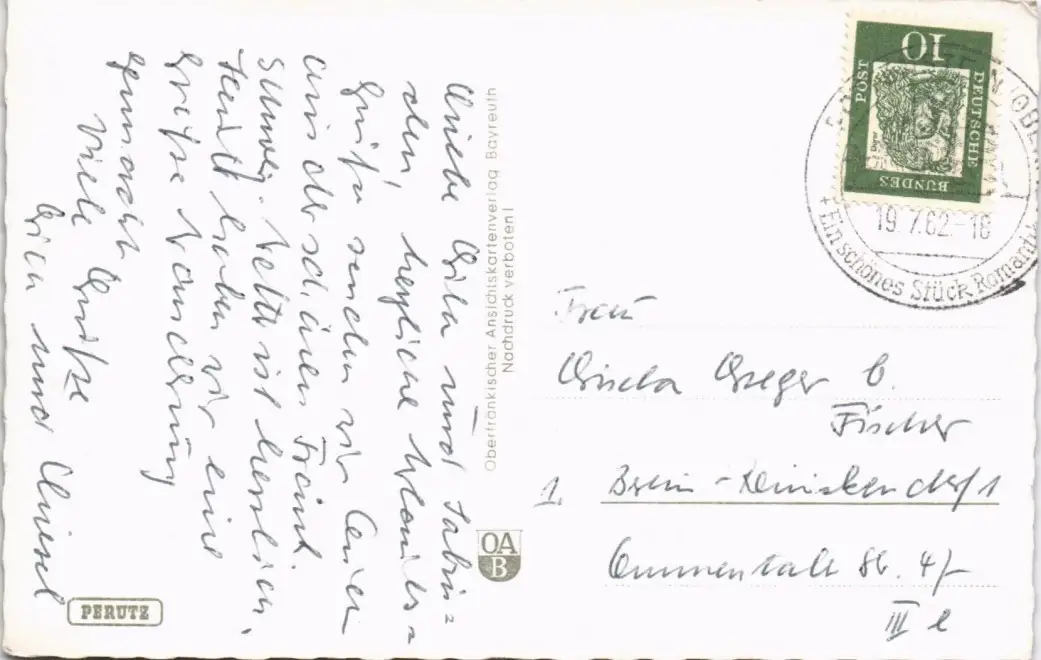 Liebe Gila und Sabin=
chen, herzliche
Grüße senden wir Euch
aus der schönen Fränk.
Schweiz. Wetter ist herrlich,
Heute haben wir eine
große Wanderung
gemacht
Viele Grüße
und Liesel
Oberfränkischer Ansichtskartenverlag Bayreuth
Nachdruck verboten!
OA
B
PERUTZ
10
DEUTSCHE
BUNDES
POST
19.7.62.-18
+ Ein schönes Stück Romantik
Frau
Gisela Greger b.
Fischer
1. Berlin-Reinickendorf 1
Emmentaler Str.
III